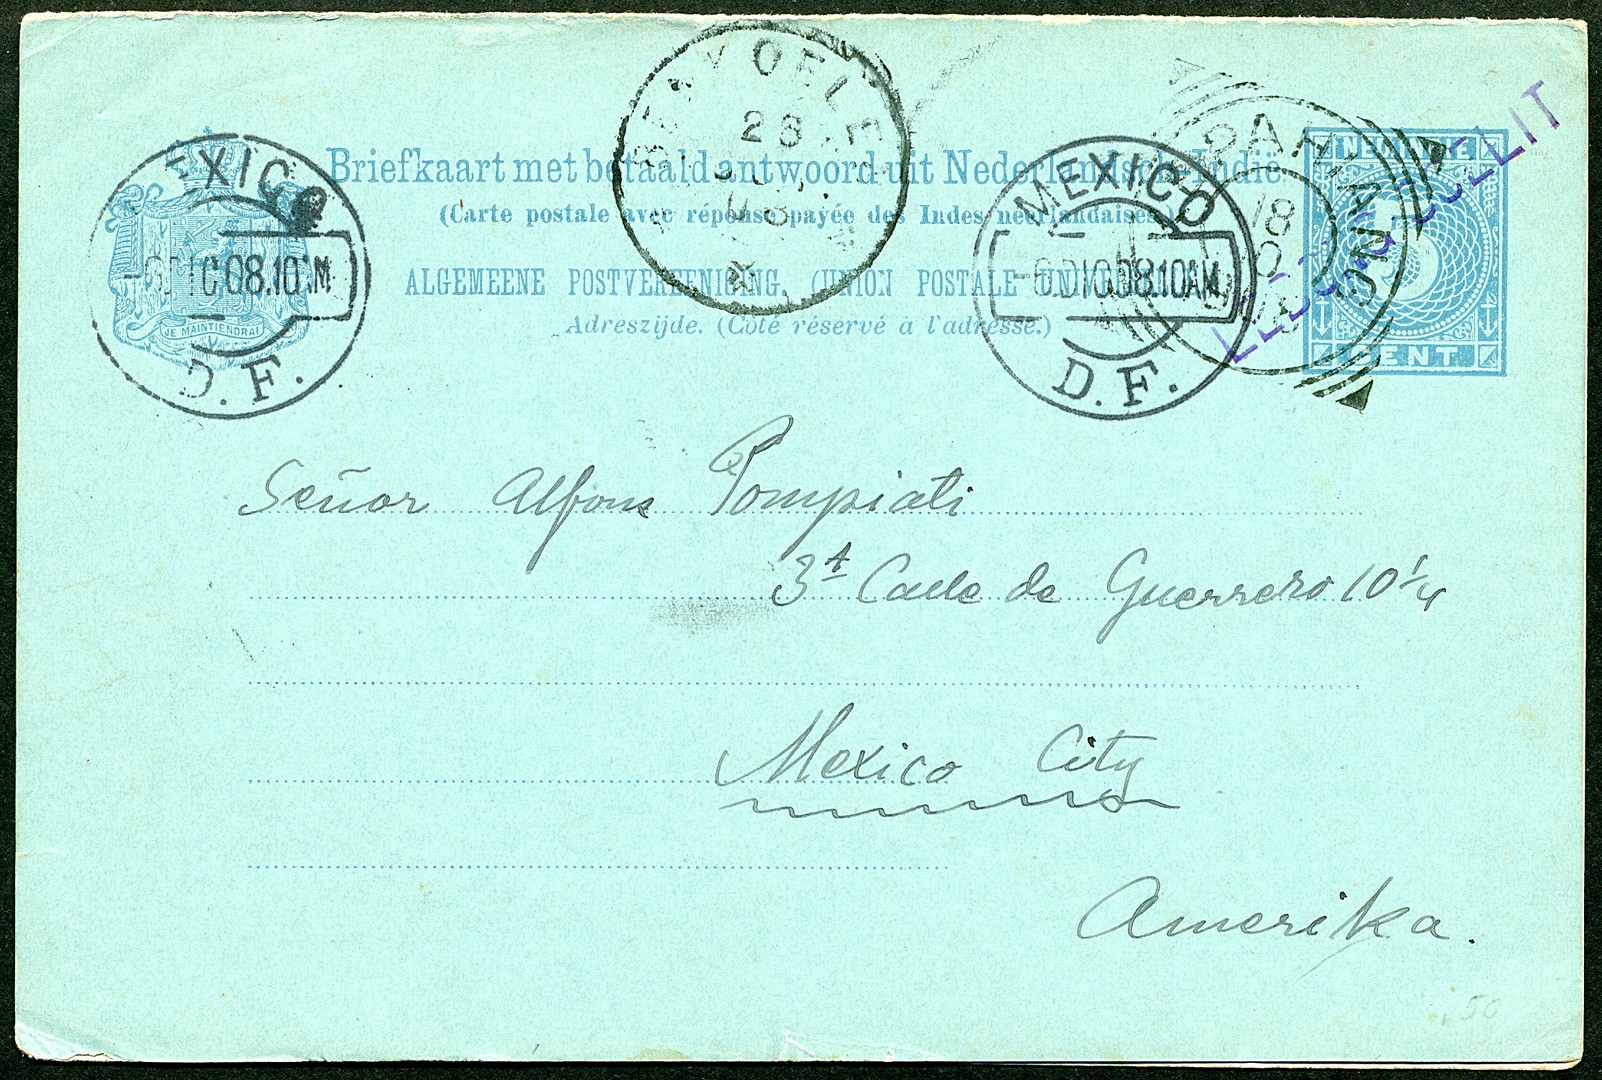 Briefkaart met betaald antwoord uit Nederlandsch-Indië
(Carte postale avec réponse payée des Indes néerlandaises.)
ALGEMEENE POSTVEREENIGING. (UNION POSTALE UNIVERSELLE.)
Adreszijde. (Côté réservé à l'adresse.)
JE MAINTIENDRAI
EXICO
-6 DIC 08.10AM
D. F.
28
MEXICO
-6 DIC 08.10AM
D. F.
18
CENT
Señor Alfons Pompiati
3ª Calle de Guerrero 10 1/4
Mexico City
Amerika.
50